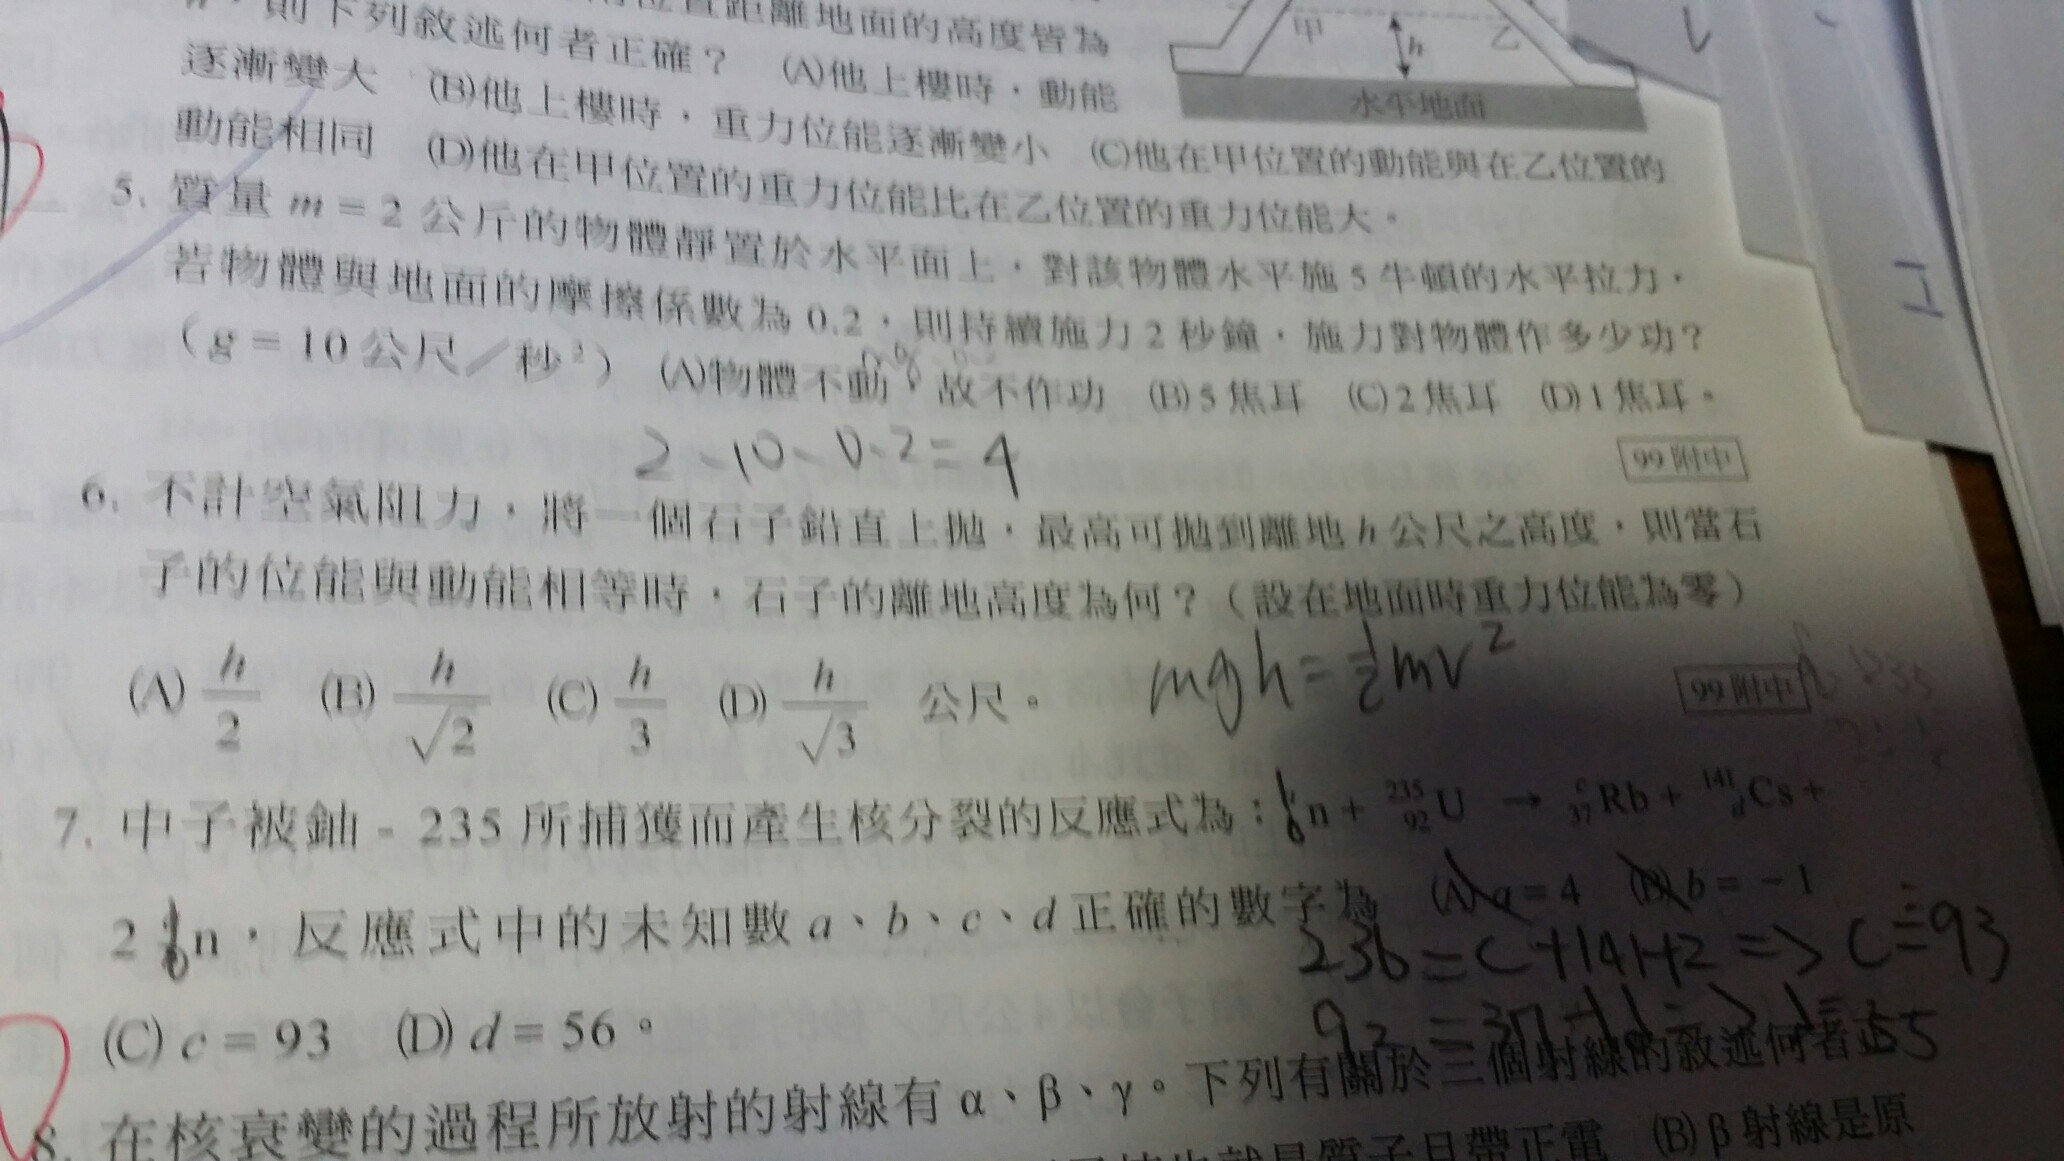 甲 h 乙
水平地面
位置距離地面的高度皆為
,則下列敘述何者正確? (A)他上樓時,動能
逐漸變大 (B)他上樓時,重力位能逐漸變小 (C)他在甲位置的動能與在乙位置的
動能相同 (D)他在甲位置的重力位能比在乙位置的重力位能大。
5. 質量 m = 2 公斤的物體靜置於水平面上,對該物體水平施 5 牛頓的水平拉力,
若物體與地面的摩擦係數為 0.2,則持續施力 2 秒鐘,施力對物體作多少功?
(g = 10 公尺/秒²) (A)物體不動,故不作功 (B) 5 焦耳 (C) 2 焦耳 (D) 1 焦耳。
2-10-0.2=4
99 附中
6. 不計空氣阻力,將一個石子鉛直上拋,最高可拋到離地 h 公尺之高度,則當石
子的位能與動能相等時,石子的離地高度為何?(設在地面時重力位能為零)
(A) h/2 (B) h/√2 (C) h/3 (D) h/√3 公尺。
mgh=½mv²
99 附中
7. 中子被鈾 - 235 所捕獲而產生核分裂的反應式為:¹₀n + ²³⁵₉₂U → ᶜ₃₇Rb + ¹⁴¹dCs +
2 ¹₀n,反應式中的未知數 a、b、c、d 正確的數字為 (A) a = 4 (B) b = −1
236=c+141+2=>c=93
(C) c = 93 (D) d = 56。
8. 在核衰變的過程所放射的射線有 α、β、γ。下列有關於三個射線的敘述何者正
就是質子且帶正電 (B) β 射線是原